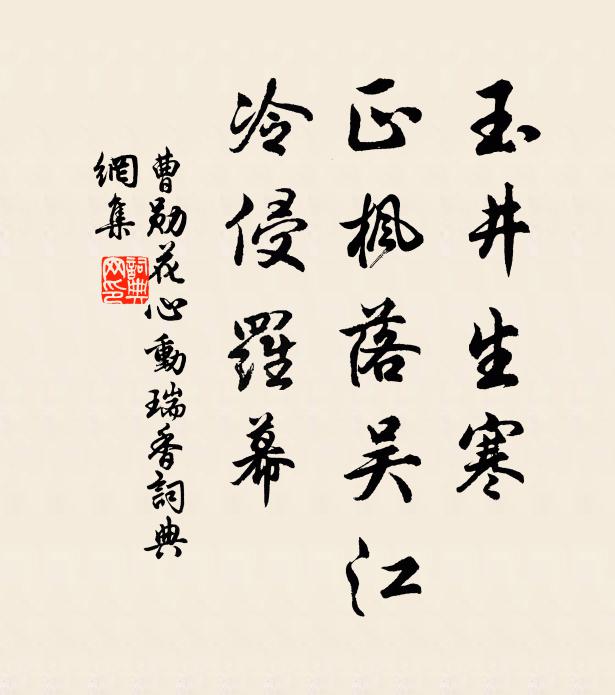 玉井生寒
正楓落吴江
冷侵羅幕
曹勛花心動瑞香詞典
網集
詞典网印